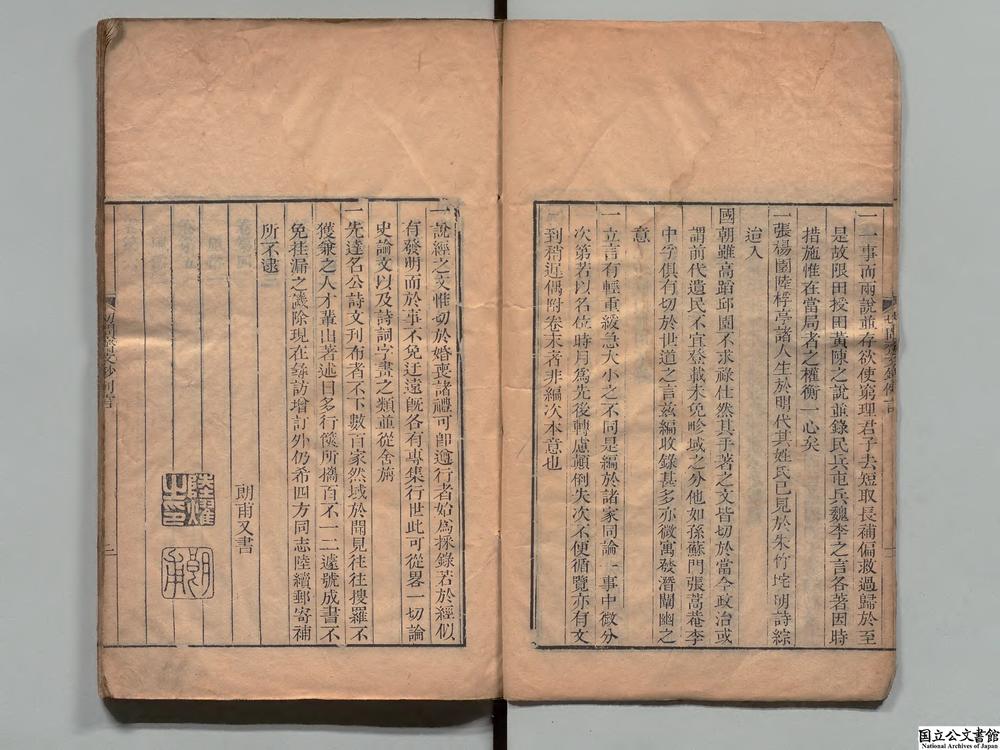 一一事而兩說並存欲使窮理君子去短取長補偏救過歸於至
是故限田授田黃陳之說並錄民兵屯兵魏李之言各著因時
措施惟在當局者之權衡一心矣
一張楊園陸桴亭諸人生於明代其姓氏已見於朱竹垞明詩綜
迨入
國朝雖高蹈邱園不求祿仕然其手著之文皆切於當今政治或
謂前代遺民不宜登載未免畛域之分他如孫蘇門張蒿菴李
中孚俱有切於世道之言兹編收錄甚多亦微寓發潛闡幽之
意
一立言有輕重緩急大小之不同是編於諸家同論一事中微分
次第若以名位時月爲先後轉慮顛倒失次不便循覽亦有文
到稍近偶附卷末者非編次本意也
一說經之文惟切於婚喪諸禮可即遵行者始爲採錄若於經似
有發明而於事不免迂遠旣各有專集行世此可從畧一切論
史論文以及詩詞字畫之類並從舍旃
一先達名公詩文刊布者不下數百家然域於聞見往往搜羅不
獲兼之人才輩出著述日多行篋所攜百不一二遽號成書不
免挂漏之譏除現在錄訪增訂外仍希四方同志陸續郵寄補
所不逮
朗甫又書
陸燿之印
朗甫
二
国立公文書館
National Archives of Japan